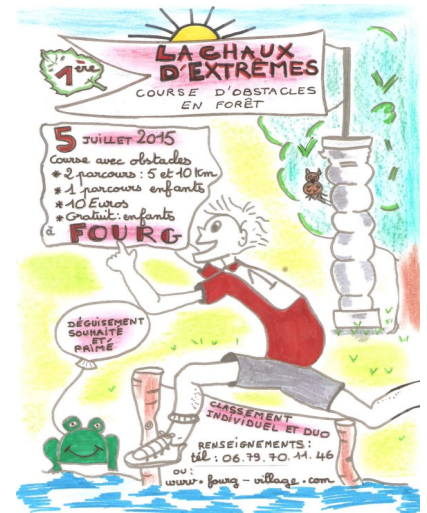 1ère
LA CHAUX
D'EXTRÊMES
COURSE D'OBSTACLES
EN FORÊT
5 JUILLET 2015
Course avec obstacles
* 2 parcours : 5 et 10 km
* 1 parcours enfants
* 10 Euros
* Gratuit : enfants
à FOURG
DÉGUISEMENT
SOUHAITÉ
ET
PRIMÉ
CLASSEMENT
INDIVIDUEL ET DUO
RENSEIGNEMENTS :
tél : 06.79.70.11.46
ou :
www.fourg-village.com